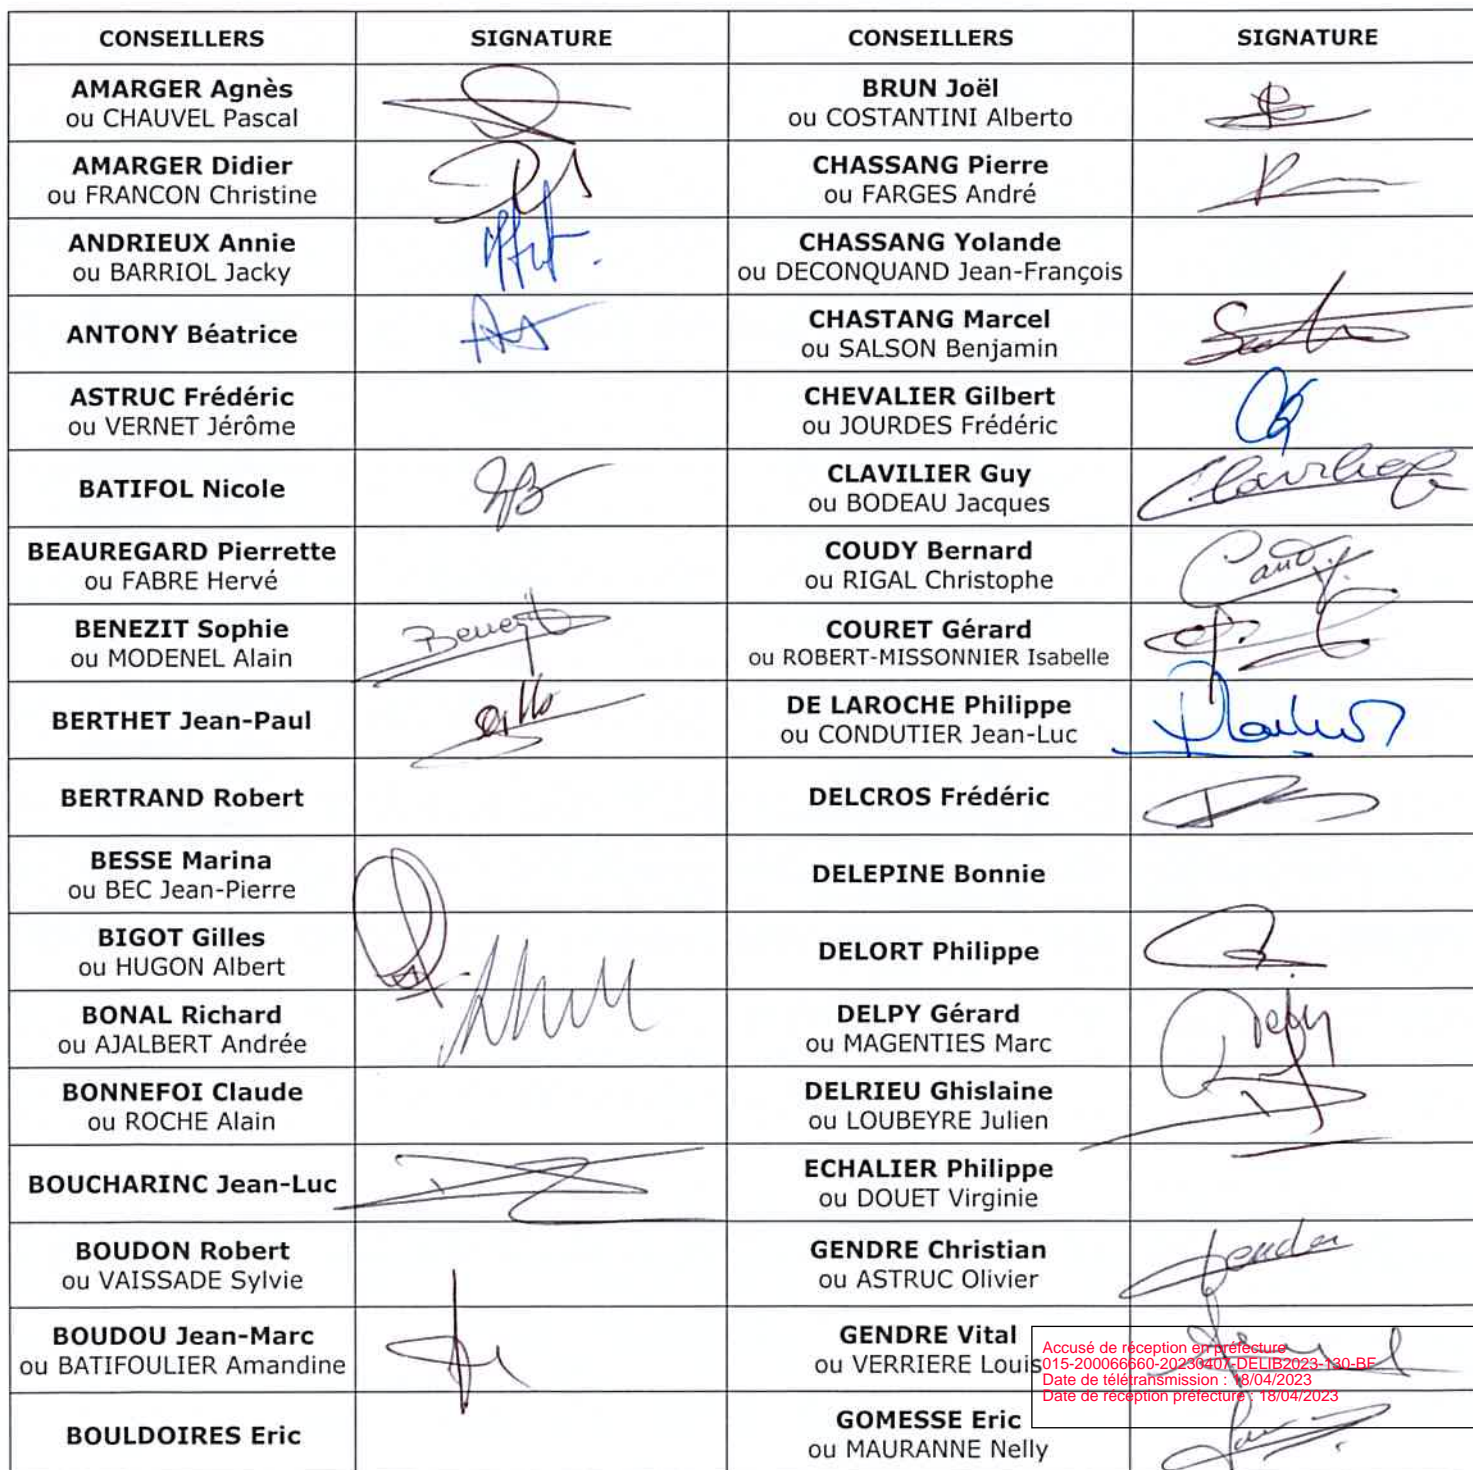 CONSEILLERS SIGNATURE CONSEILLERS SIGNATURE
AMARGER Agnès
ou CHAUVEL Pascal
BRUN Joël
ou COSTANTINI Alberto
AMARGER Didier
ou FRANCON Christine
CHASSANG Pierre
ou FARGES André
ANDRIEUX Annie
ou BARRIOL Jacky
CHASSANG Yolande
ou DECONQUAND Jean-François
ANTONY Béatrice
CHASTANG Marcel
ou SALSON Benjamin
ASTRUC Frédéric
ou VERNET Jérôme
CHEVALIER Gilbert
ou JOURDES Frédéric
BATIFOL Nicole
CLAVILIER Guy
ou BODEAU Jacques
BEAUREGARD Pierrette
ou FABRE Hervé
COUDY Bernard
ou RIGAL Christophe
BENEZIT Sophie
ou MODENEL Alain
COURET Gérard
ou ROBERT-MISSONNIER Isabelle
BERTHET Jean-Paul
DE LAROCHE Philippe
ou CONDUTIER Jean-Luc
BERTRAND Robert
DELCROS Frédéric
BESSE Marina
ou BEC Jean-Pierre
DELEPINE Bonnie
BIGOT Gilles
ou HUGON Albert
DELORT Philippe
BONAL Richard
ou AJALBERT Andrée
DELPY Gérard
ou MAGENTIES Marc
BONNEFOI Claude
ou ROCHE Alain
DELRIEU Ghislaine
ou LOUBEYRE Julien
BOUCHARINC Jean-Luc
ECHALIER Philippe
ou DOUET Virginie
BOUDON Robert
ou VAISSADE Sylvie
GENDRE Christian
ou ASTRUC Olivier
BOUDOU Jean-Marc
ou BATIFOULIER Amandine
GENDRE Vital
ou VERRIERE Louis
Accusé de réception en préfecture
015-200066660-20230407-DELIB2023-130-BF
Date de télétransmission : 18/04/2023
Date de réception préfecture : 18/04/2023
BOULDOIRES Eric
GOMESSE Eric
ou MAURANNE Nelly